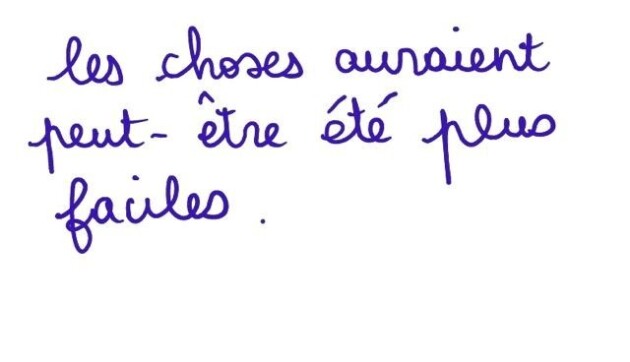 les choses auraient
peut-être été plus
faciles.